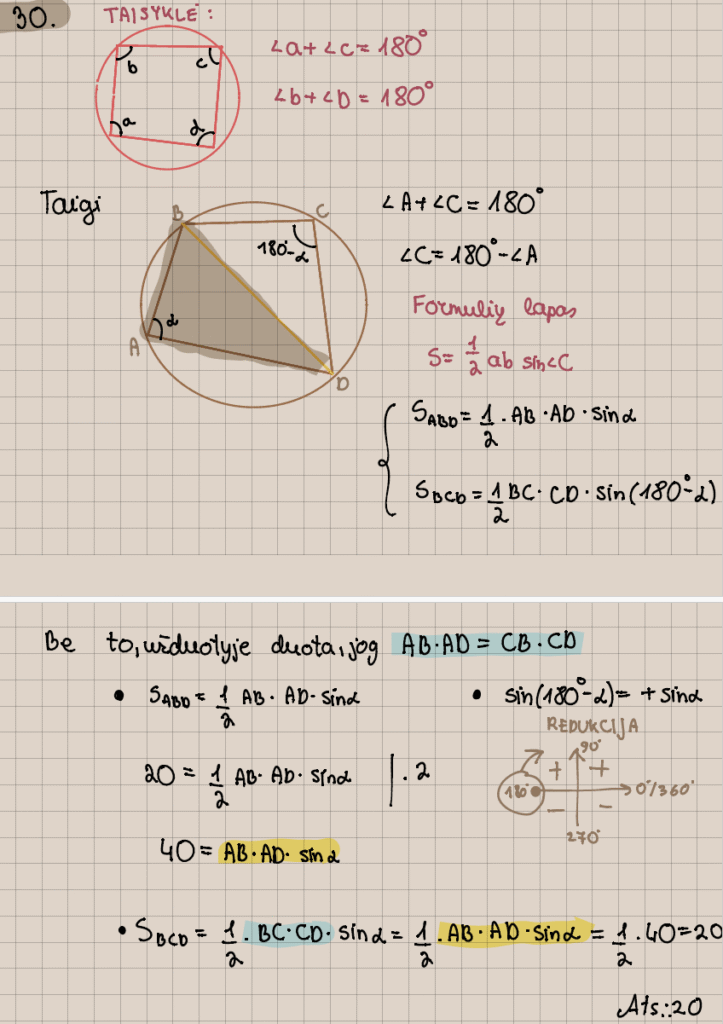 30. TAISYKLĖ:
∠a+∠c=180°
∠b+∠D=180°
b c
a d
Taigi
∠A+∠C=180°
∠C=180°-∠A
B C
180°-α
α
A
D
Formulių lapas
S=1/2 ab sin∠C
S_ABD=1/2·AB·AD·sinα
S_BCD=1/2 BC·CD·sin(180°-α)
Be to, užduotyje duota, jog AB·AD=CB·CD
• S_ABD=1/2 AB·AD·sinα
• sin(180°-α)=+sinα
REDUKCIJA
90°
+ +
180° 0°/360°
- -
270°
20=1/2 AB·AD·sinα |·2
40=AB·AD·sinα
• S_BCD=1/2·BC·CD·sinα=1/2·AB·AD·sinα=1/2·40=20
Ats.:20